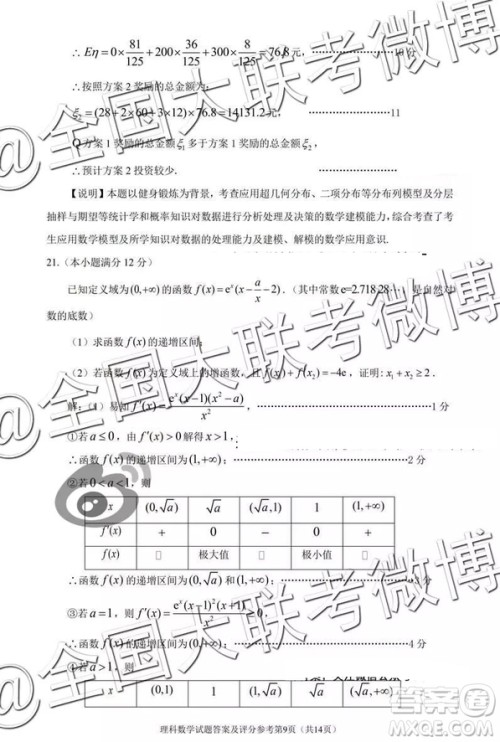 ∴ Eη=0×81/125+200×36/125+300×8/125=76.8元, ……10分
∴按照方案2奖励的总金额为:
ξ₂=(28+2×60+3×12)×76.8=14131.2元, ……11
Q方案1奖励的总金额ξ₁多于方案1奖励的总金额ξ₂,
∴预计方案2投资较少.
【说明】本题以健身锻炼为背景,考查应用超几何分布、二项分布等分布列模型及分层
抽样与期望等统计学和概率知识对数据进行分析处理及决策的数学建模能力,综合考查了考
生应用数学模型及所学知识对数据的处理能力及建模、解模的数学应用意识.
21.(本小题满分12分)
已知定义域为(0,+∞)的函数f(x)=eˣ(x-a/x-2).(其中常数e=2.718 28…,是自然对
数的底数)
(1)求函数f(x)的递增区间;
(2)若函数f(x)为定义域上的增函数,且f(x₁)+f(x₂)=-4e,证明:x₁+x₂≥2.
解:(1)易知f′(x)=eˣ(x-1)(x²-a)/x², ……1分
①若a≤0,由f′(x)>0解得x>1,
∴函数f(x)的递增区间为(1,+∞); ……2分
②若0<a<1,则
x (0,√a) √a (√a,1) 1 (1,+∞)
f′(x) + 0 − 0 +
f(x) 极大值 极小值
∴函数f(x)的递增区间为(0,√a)和(1,+∞); ……3分
③若a=1,则f′(x)=eˣ(x-1)²(x+1)/x²≥0,
……4分
④若a>1,则
x (0,1) 1 (1,√a) √a (√a,+∞)
理科数学试题答案及评分参考第9页(共14页)
@全国大联考微博
@全国大联考微博